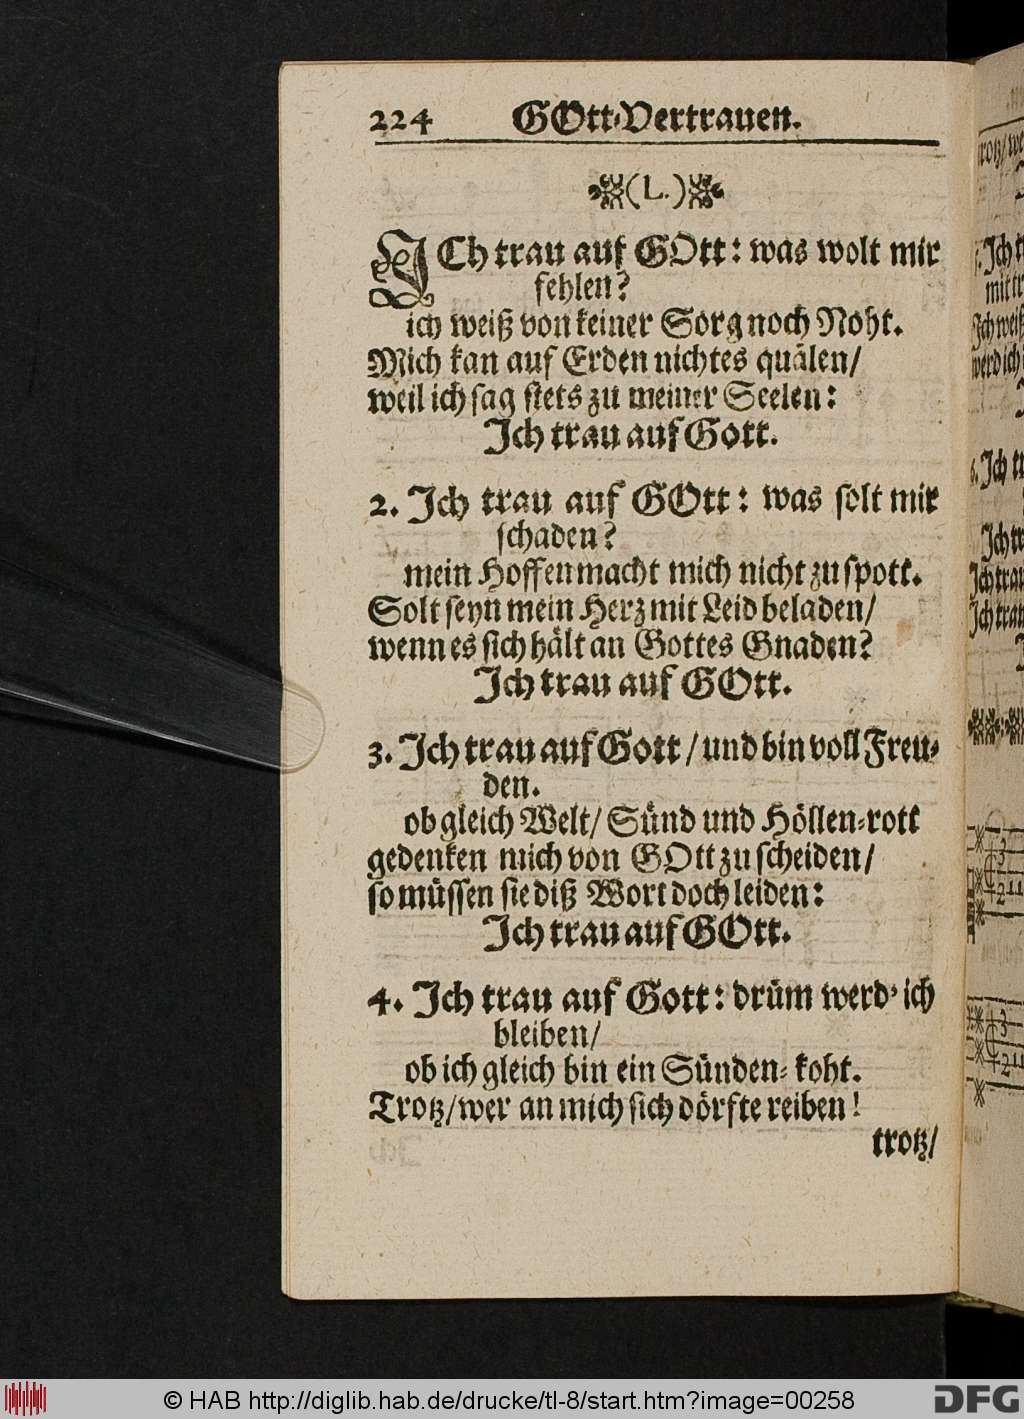 224 GOtt-Vertrauen.
(L.)
ICh trau auf GOtt: was wolt mir
fehlen?
ich weiß von keiner Sorg noch Noht.
Mich kan auf Erden nichtes quälen/
weil ich sag stets zu meiner Seelen:
Ich trau auf Gott.
2. Ich trau auf GOtt: was solt mir
schaden?
mein Hoffen macht mich nicht zu spott.
Solt seyn mein Herz mit Leid beladen/
wenn es sich hält an Gottes Gnaden?
Ich trau auf GOtt.
3. Ich trau auf Gott/ und bin voll Freu-
den.
ob gleich Welt/ Sünd und Höllen-rott
gedenken mich von GOtt zu scheiden/
so müssen sie diß Wort doch leiden:
Ich trau auf GOtt.
4. Ich trau auf Gott: drüm werd' ich
bleiben/
ob ich gleich bin ein Sünden-koht.
Trotz/ wer an mich sich dörfte reiben!
trotz/
© HAB http://diglib.hab.de/drucke/tl-8/start.htm?image=00258
DFG